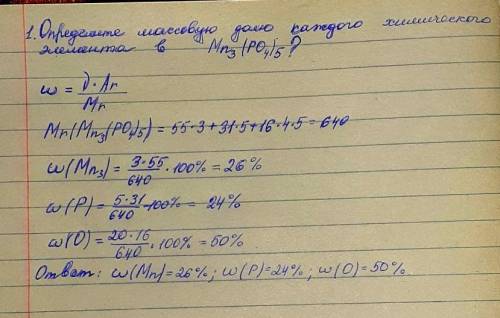 1. Определите массовую долю каждого химического
элемента в Mn₃(PO₄)₅?
ω = ν·Ar / Mr
Mr(Mn₃(PO₄)₅) = 55·3+31·5+16·4·5=640
ω(Mn₃) = 3·55/640 · 100% = 26%
ω(P) = 5·31/640 · 100% = 24%
ω(O) = 20·16/640 · 100% = 50%.
Ответ: ω(Mn)=26%; ω(P)=24%; ω(O)=50%.